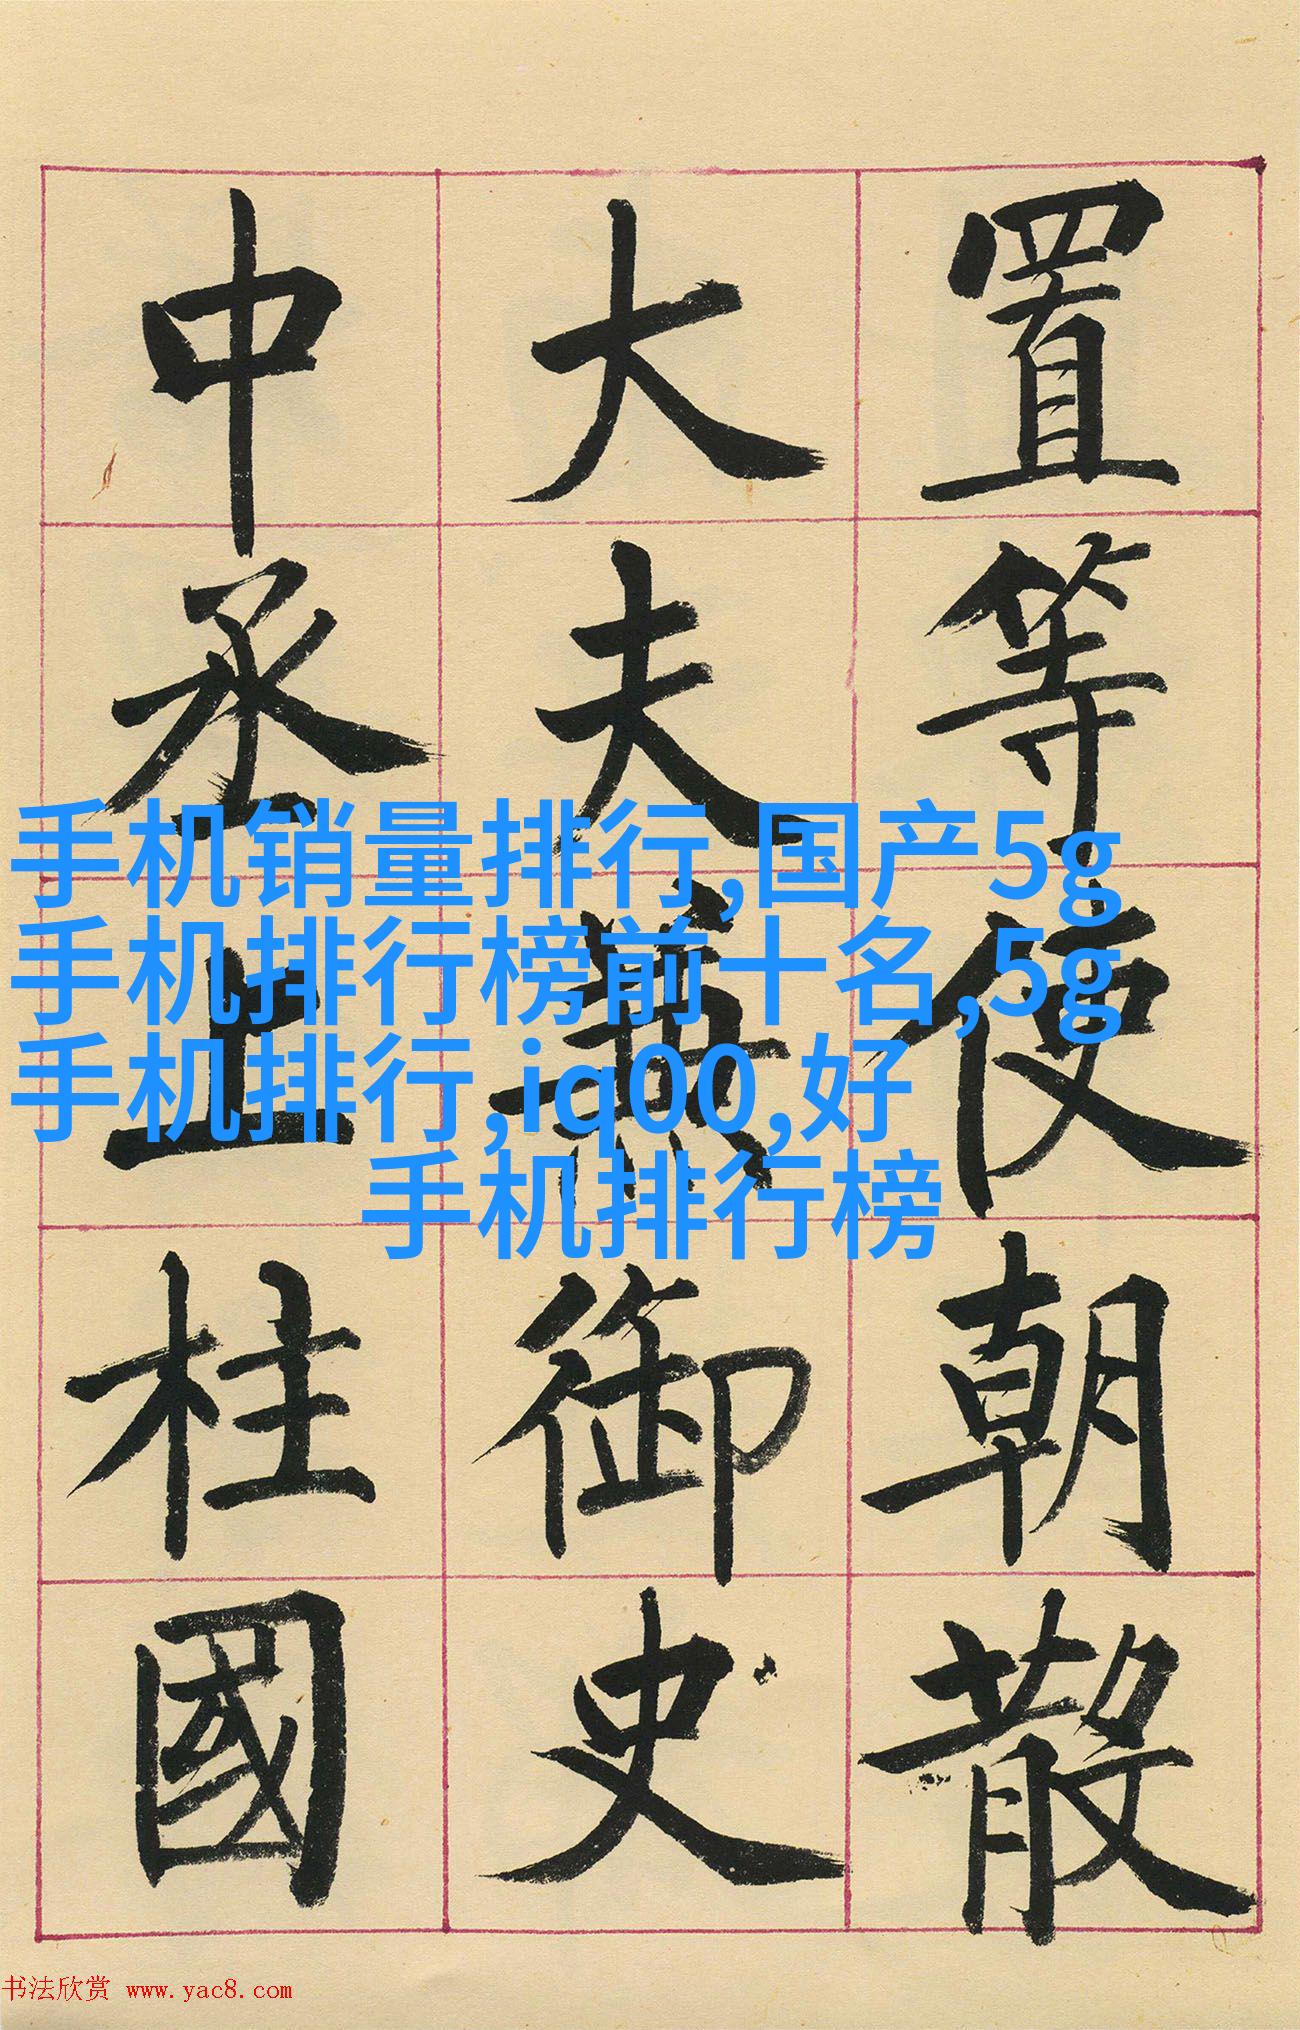 置等使朝散
大夫兼御史
中丞上柱國
手机销量排行,国产5g
手机排行榜前十名,5g
手机排行,iq00,好
手机排行榜
书法欣赏 www.yac8.com